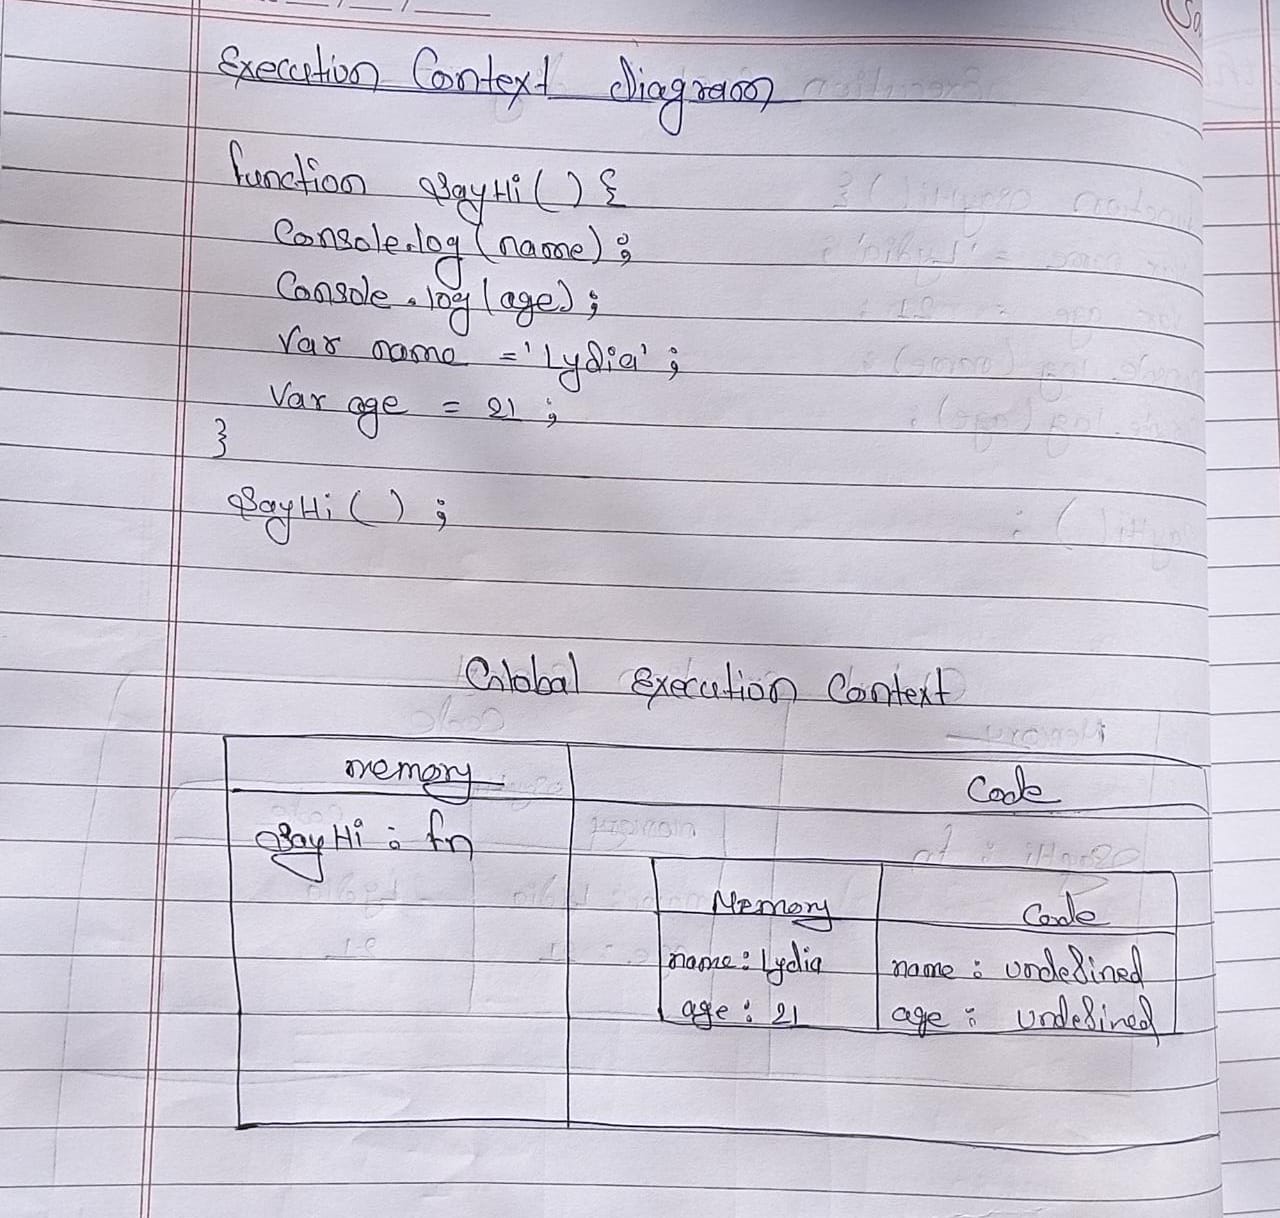 Execution Context diagram
function sayHi() {
Console.log(name);
Console.log(age);
Var name = 'Lydia';
Var age = 21;
}
sayHi();
Global Execution Context
memory Code
sayHi : fn
Memory Code
name : Lydia name : undefined
age : 21 age : undefined